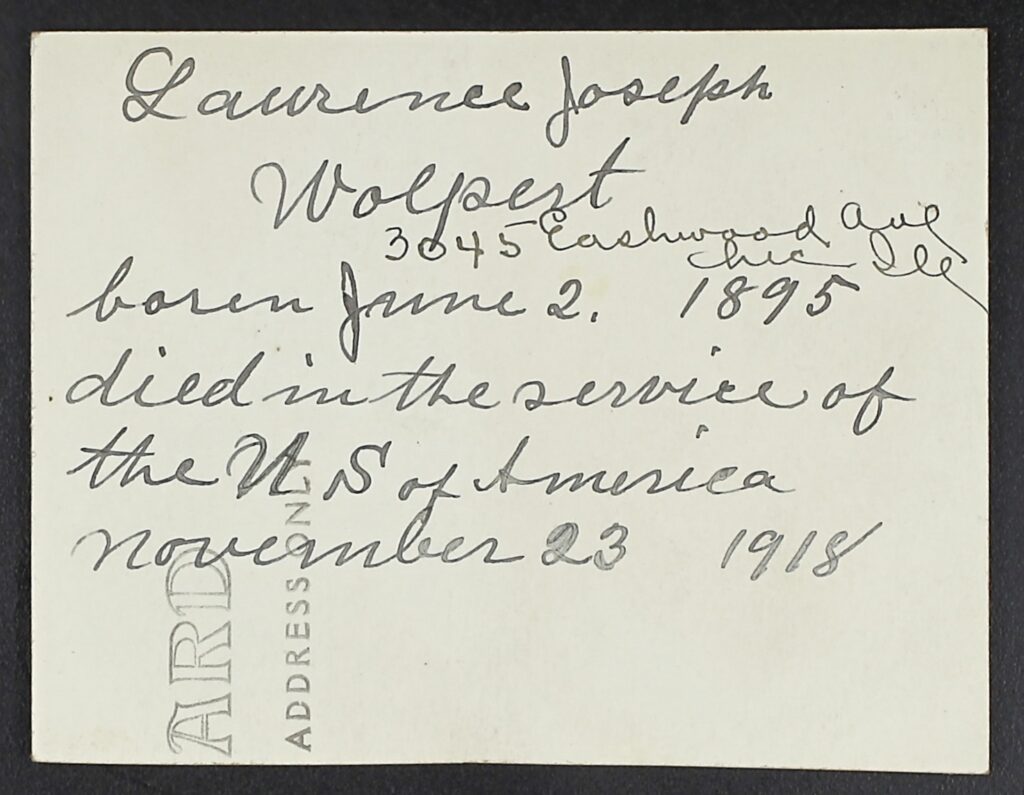 Laurence Joseph
Wolpert
3045 Eastwood Ave
Chic Ill
boren June 2. 1895
died in the service of
the U.S of America
November 23 1918
ARD
ADDRESS ONLY